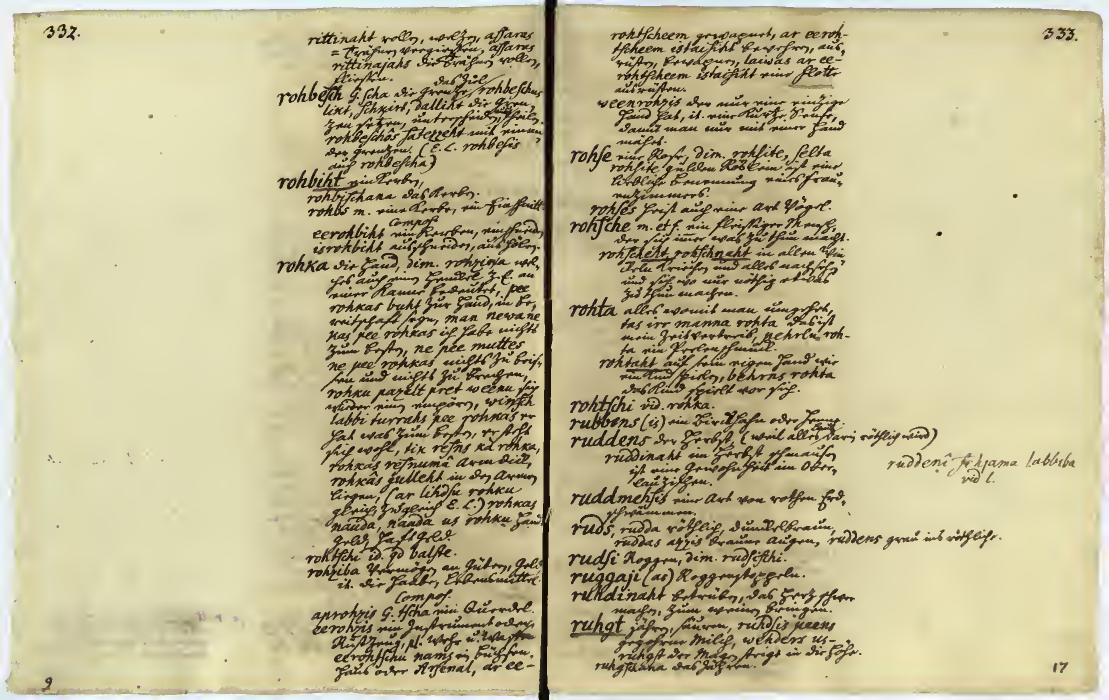 332.
rittinaht rollen, welzen, assaras
= Trähnen vergiessen, assaras
rittinajahs die Trähnen rollen,
fliessen.
das Ziel,
rohbesch G. scha die Grenze, rohbeschus
likt, schkirt, dalliht die Gren-
zen setzen, unterscheiden, theilen.
rohbeschôs satezzeht mit einem
der grenzen. (E. L. rohbesis
auch rohbescha)
rohbiht ein Kerben,
rohbischana das Kerben.
rohbs m. eine Kerbe, ein Einschnitt
Compos.
eerohbiht ein Kerben, einschneiden
isrohbiht ausschneiden, aushölen.
rohka die Hand, dim. rohziņa wel-
ches auch einen Henckel z. E. an
einer Kanne bedeutet, pee
rohkas buht zur Hand, in Be-
reitschaft seyn, man newane
kas pee rohkas ich habe nichts
zum besten, ne pee muttes
ne pee rohkas nichts zu beis-
sen und nichts zu brechen,
rohku pazelt pret weenu sich
wieder einen empören, winsch
labbi turrahs pee rohkas er
hat was zum besten, er steht
sich wohl, tik resns ka rohka,
rohkas resnumâ Arm dick,
rohkâs gulleht in den Armen
liegen, (ar lihdsu rohku
gleich zugleich E. L.) rohkas
nauda, nauda us rohku Hand
Geld, Haftgeld.
rohtschi id. qd balste.
rohziba Vermögen an Güthern, Geld
it. die Haabe, Lebensmittel
Compos.
aprohzis G. tscha ein Querdel.
eerohzis ein Instrument oder
Rüstzeug, pl. Wehr u. Waffen
eerohtschu nams ein Büchsen-
haus oder Arsenal, ar ee-
9
333.
rohtscheem gewapnet, ar eeroh-
tscheem istaisiht bewehren, aus-
rüsten, bewapnen, laiwas ar ee-
rohtscheem istaisiht eine Flotte
ausrüsten.
weenrohzis der nur eine einzige
Hand hat, it. eine kurze Sense,
damit man nur mit einer Hand
mähet.
rohse eine Rose, dim. rohsite, selta
rohsite gülden Röslein ist eine
liebliche Benennung eines Frau-
enzimmers.
rohses heist auch eine Art Vögel.
rohsche m. et f. ein fleissiger Mensch,
der sich immer was zu thun macht.
rohscheht, rohschnaht in allen Win-
ckeln kriechen und alles nachsehen
und sich wo nur nöthig etwas
zu thun machen.
rohta alles womit man umgehet,
tas irr manna rohta das ist
mein Zeitvertreib, pehrlu roh-
ta ein Perlenschmuck.
rohtaht auf sein eigen Hand wie
ein Kind spielen, behrns rohta
das Kind spielt vor sich.
rohtschi vid. rohka.
rubbens (is) ein Birckhahn oder Henne.
ruddens der Herbst, (weil alles Laub darin röthlich wird)
ruddinaht im Herbst schmausen
ist eine Gewohnheit im Ober-
lautzischen.
ruddenî sehjama labbiba
vid l.
ruddmehsis eine Art von rothen Erd-
schwämmen.
ruds, rudda röthlich, dunckelbraun,
ruddas azzis braune Augen, ruddens grau ins röthliche.
rudsi Roggen, dim. rudsischi.
ruggaji (as) Roggenstoppeln.
ruhdinaht betrüben, das Hertz schwer
machen, zum weinen bringen.
ruhgt jähren, säuren, ruhdsis peens
gegohren Milch, wehders us-
ruhgst der Magen steigt in die Höhe.
ruhgschana das Jähren.
17